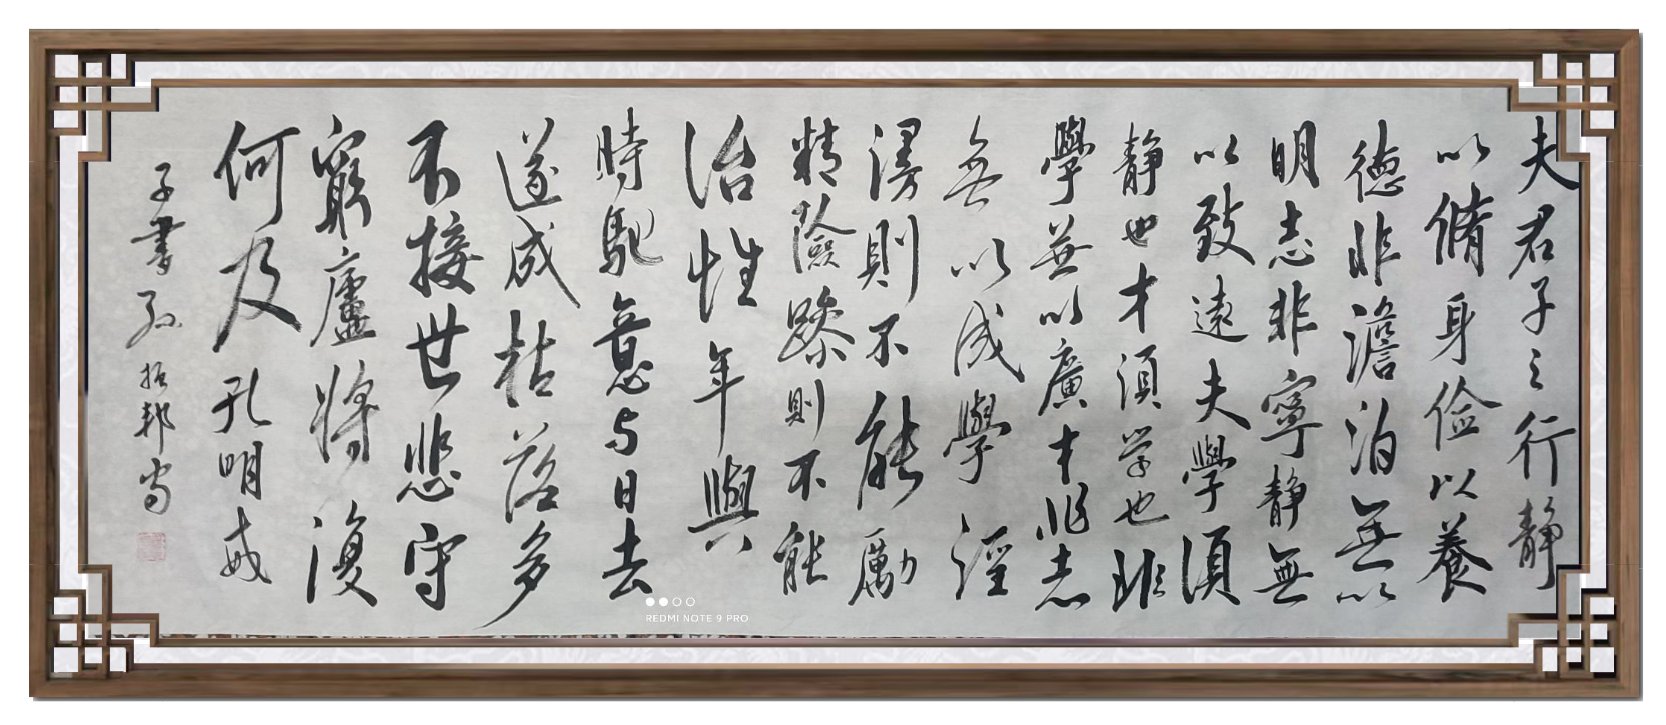 夫君子之行静
以脩身俭以養
德非澹泊無以
明志非寧静無
以致遠夫學須
静也才須学也非
學無以廣才非志
無以成學淫
漫則不能勵
精險躁則不能
治性年與
時馳意与日去
遂成枯落多
不接世悲守
窮廬將復
何及孔明戒
子書
REDMI NOTE 9 PRO